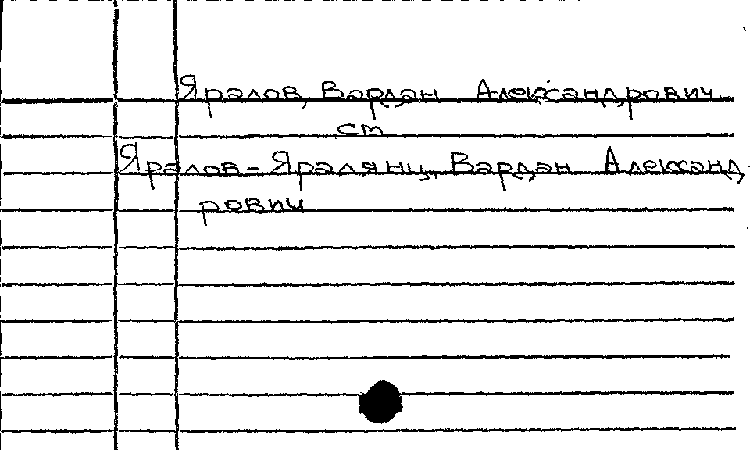 Яралов, Вардан Александрович
см
Яралов-Яралянц, Вардан Александ
рович